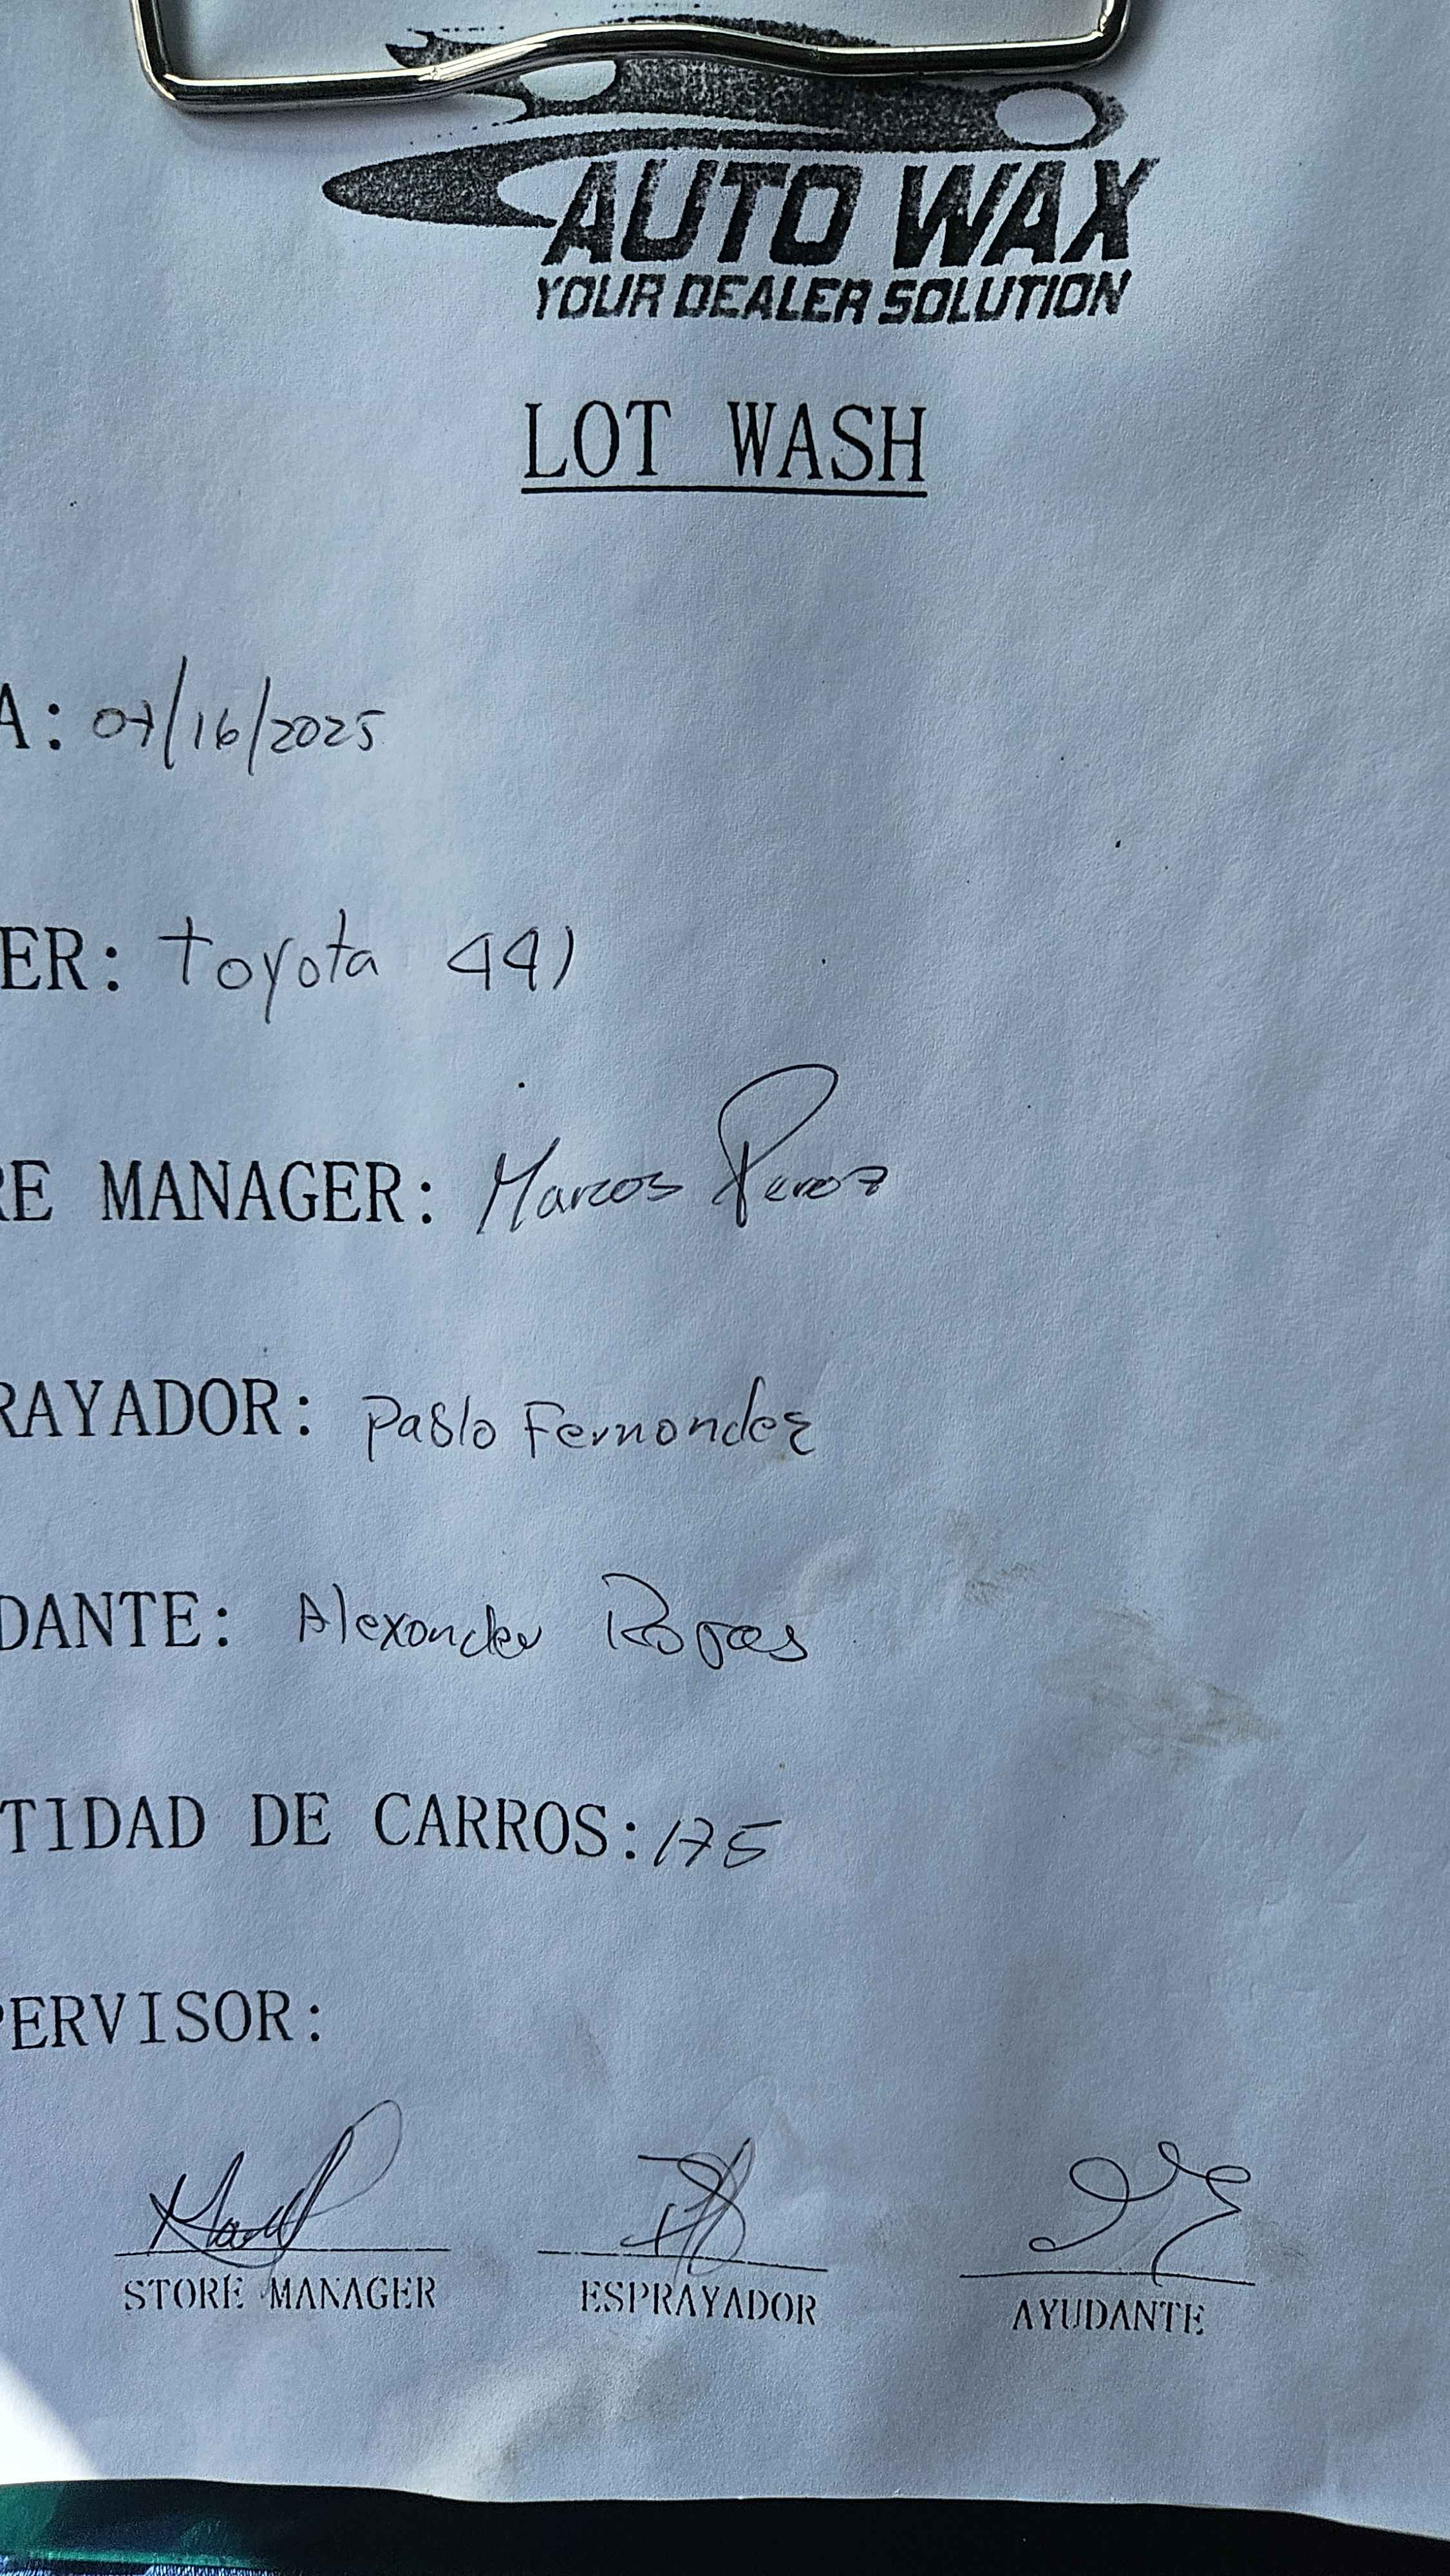 AUTO WAX
YOUR DEALER SOLUTION
LOT WASH
A: 07/16/2025
ER: Toyota 441
RE MANAGER: Marcos Perez
RAYADOR: Pablo Fernandez
DANTE: Alexander Rojas
TIDAD DE CARROS: 175
PERVISOR:
STORE MANAGER ESPRAYADOR AYUDANTE